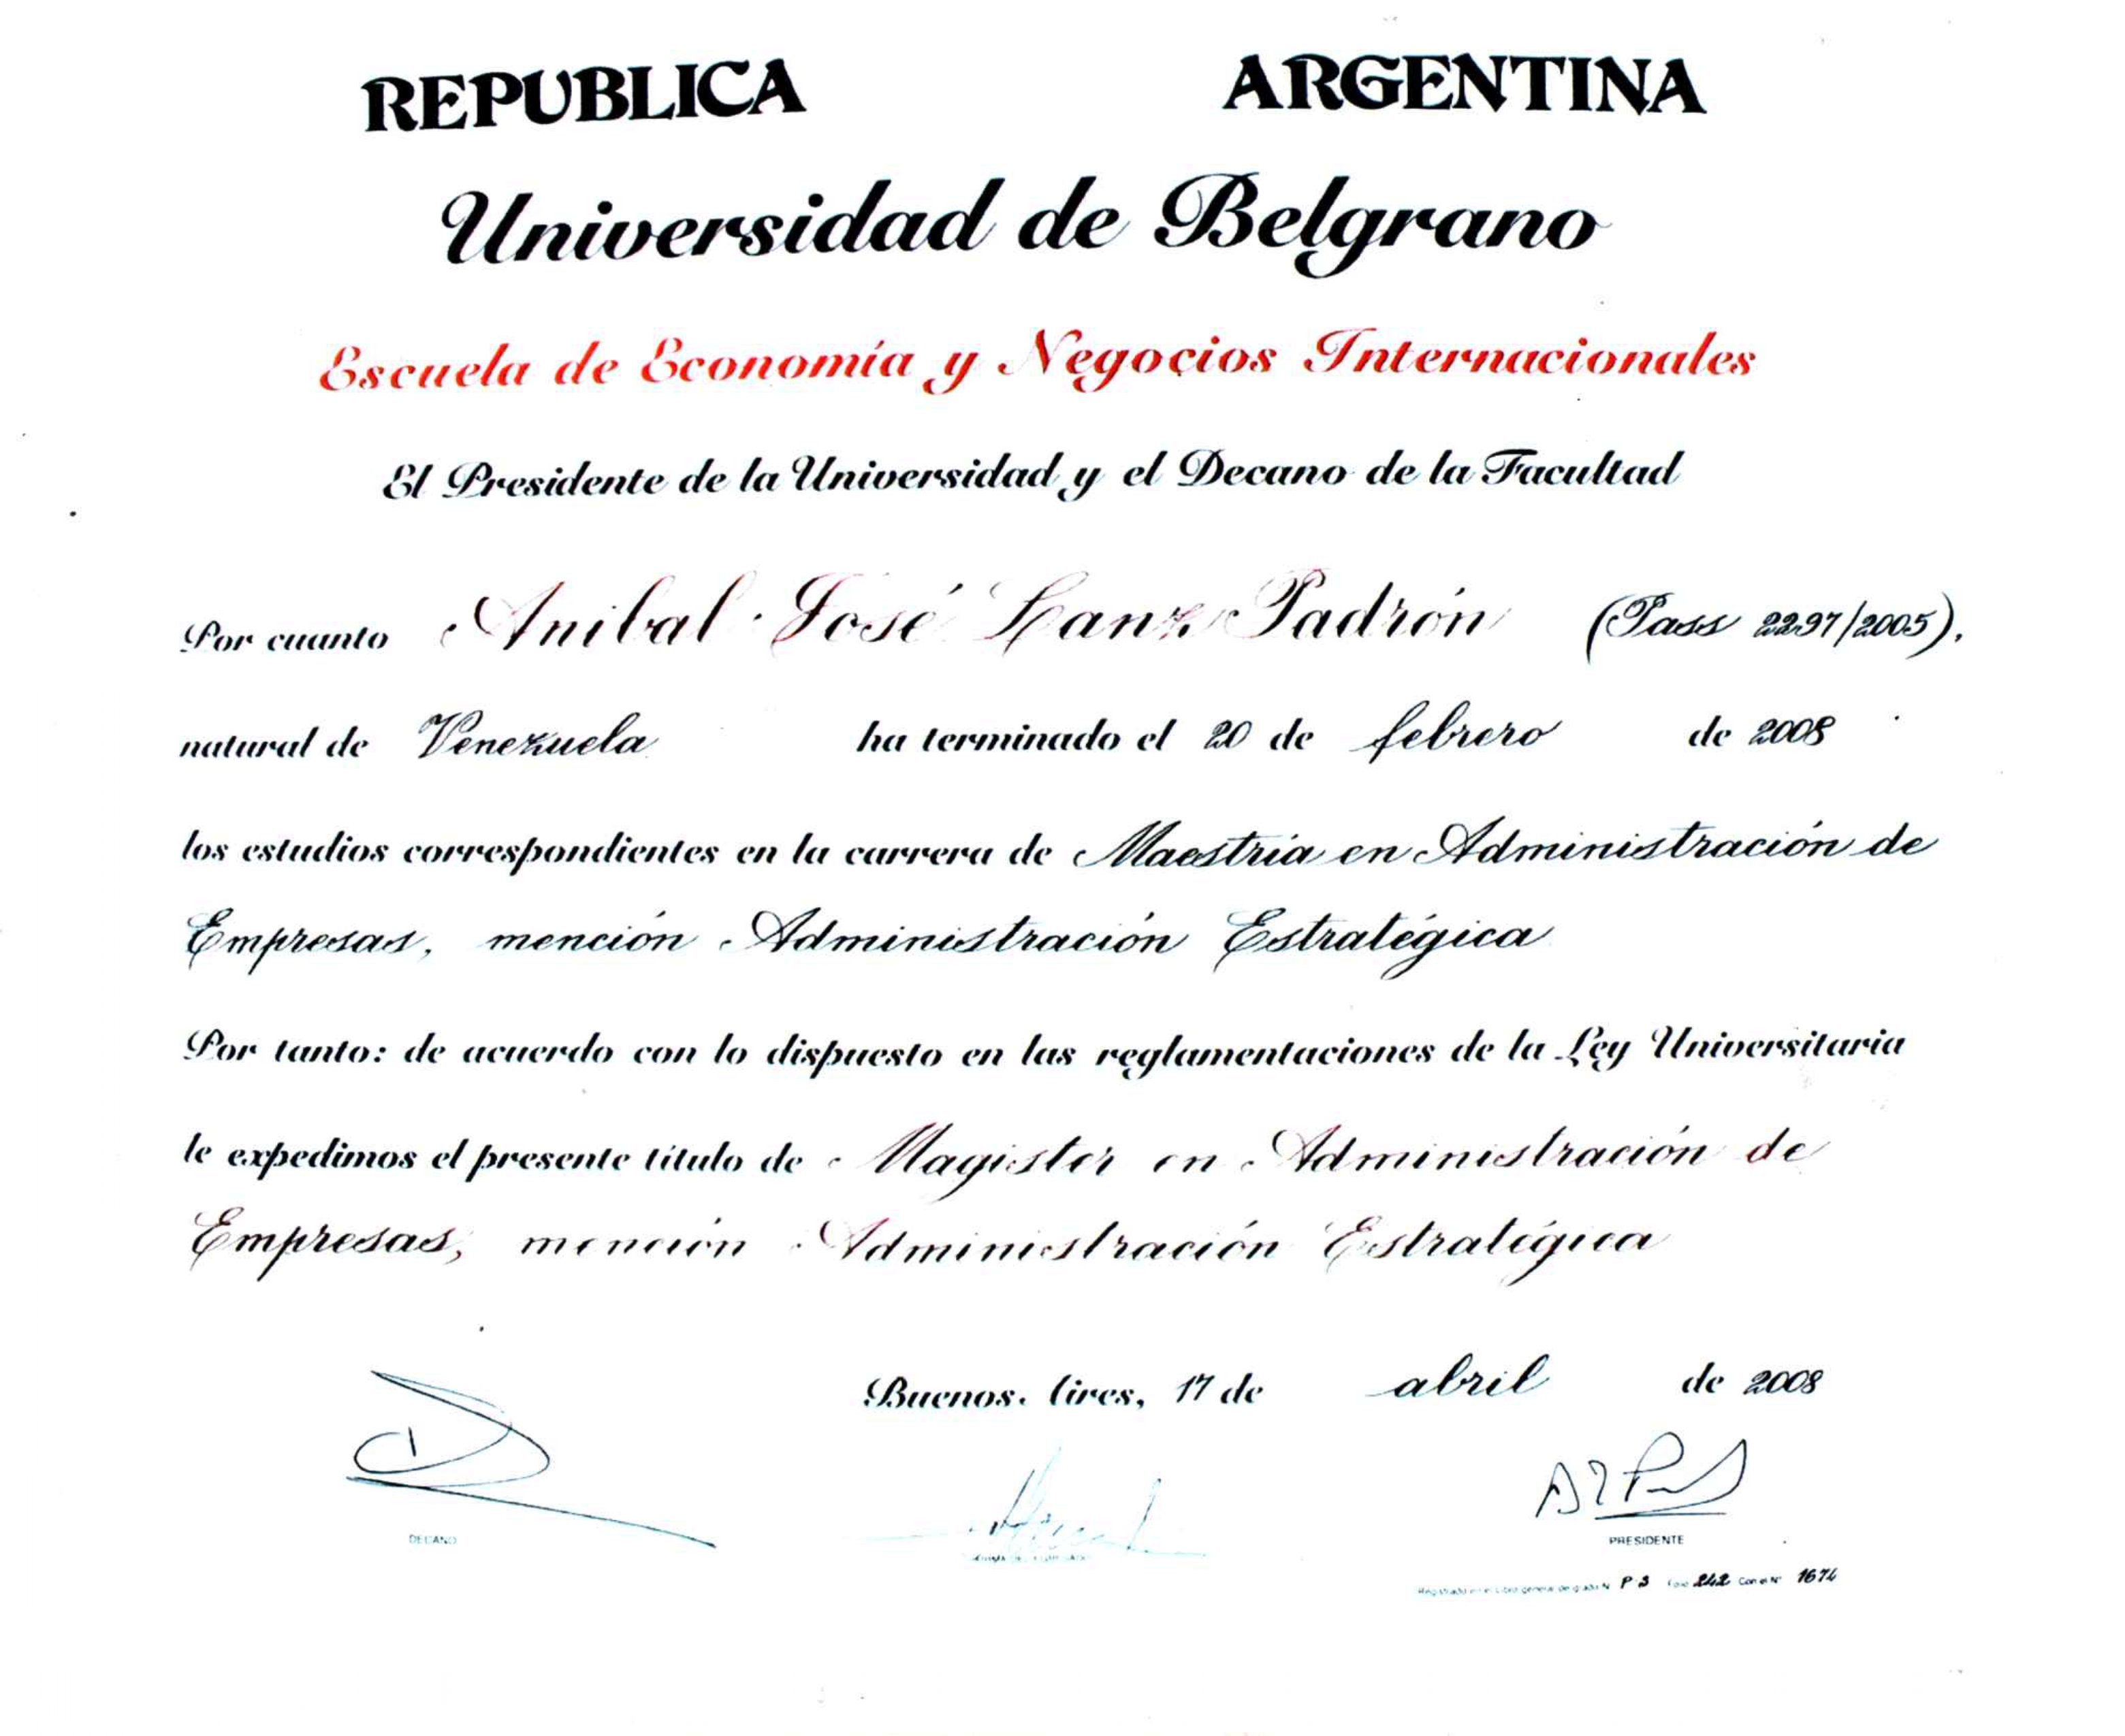 REPUBLICA ARGENTINA
Universidad de Belgrano
Escuela de Economía y Negocios Internacionales
El Presidente de la Universidad y el Decano de la Facultad
Por cuanto Anibal José Lanz Padrón (Pass 2297/2005),
natural de Venezuela ha terminado el 20 de febrero de 2008
los estudios correspondientes en la carrera de Maestría en Administración de
Empresas, mención Administración Estratégica
Por tanto: de acuerdo con lo dispuesto en las reglamentaciones de la Ley Universitaria
le expedimos el presente título de Magister en Administración de
Empresas, mención Administración Estratégica
Buenos Aires, 17 de abril de 2008
DECANO
PRESIDENTE
Registrado en el Libro general de grado N P 3 Folio 242 Con el Nº 1674